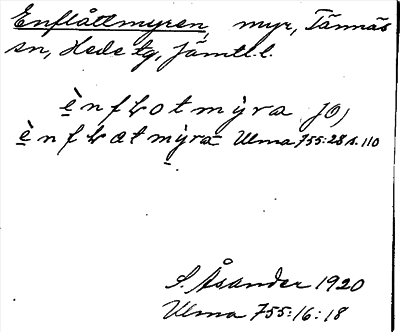 Enflåttmyren, myr, Tännäs
sn, Hede tg, Jämtl. l.
ènfɫotmỳra JO,
ènfɫatmỳra Ulma 755:28 s. 110
S. Åsander 1920
Ulma 755:16:18